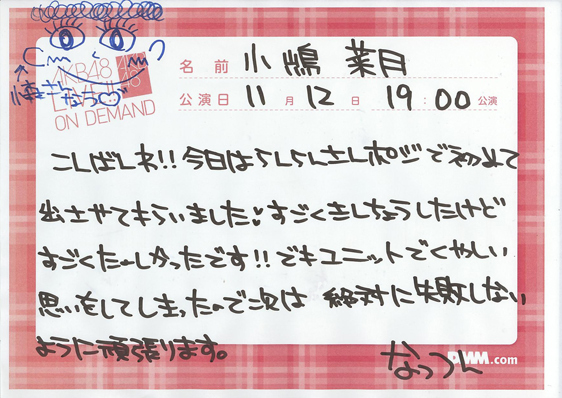 AKB48
LIVE!!
ON DEMAND
名前 小嶋菜月
公演日 11月12日 19:00公演
こんばんわ!!今日はらんらんさんポジで初めて
出させてもらいました♥すごくきんちょうしたけど
すごくたのしかったです!!でもユニットでくやしい
思いをしてしまったので次は絶対に失敗しない
ように頑張ります。
なっつん
DMM.com